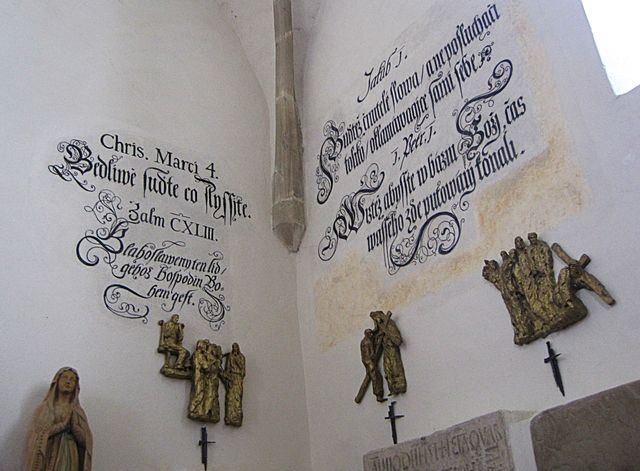 Chris. Marci 4.
Bedliwě suďte co slyssyte.
Žalm CXLIII.
Blahoslaweny ten lid/
gehož Hospodin Bo-
hem gest.
Jakub 1.
Buďtež cinitelé slowa/ a ne posluchači
toliko/ oklamawagíce sami sebe.
1. Petr. 1.
Wiztež abyste w bázni Boží čas
wasseho zde putowání konali.